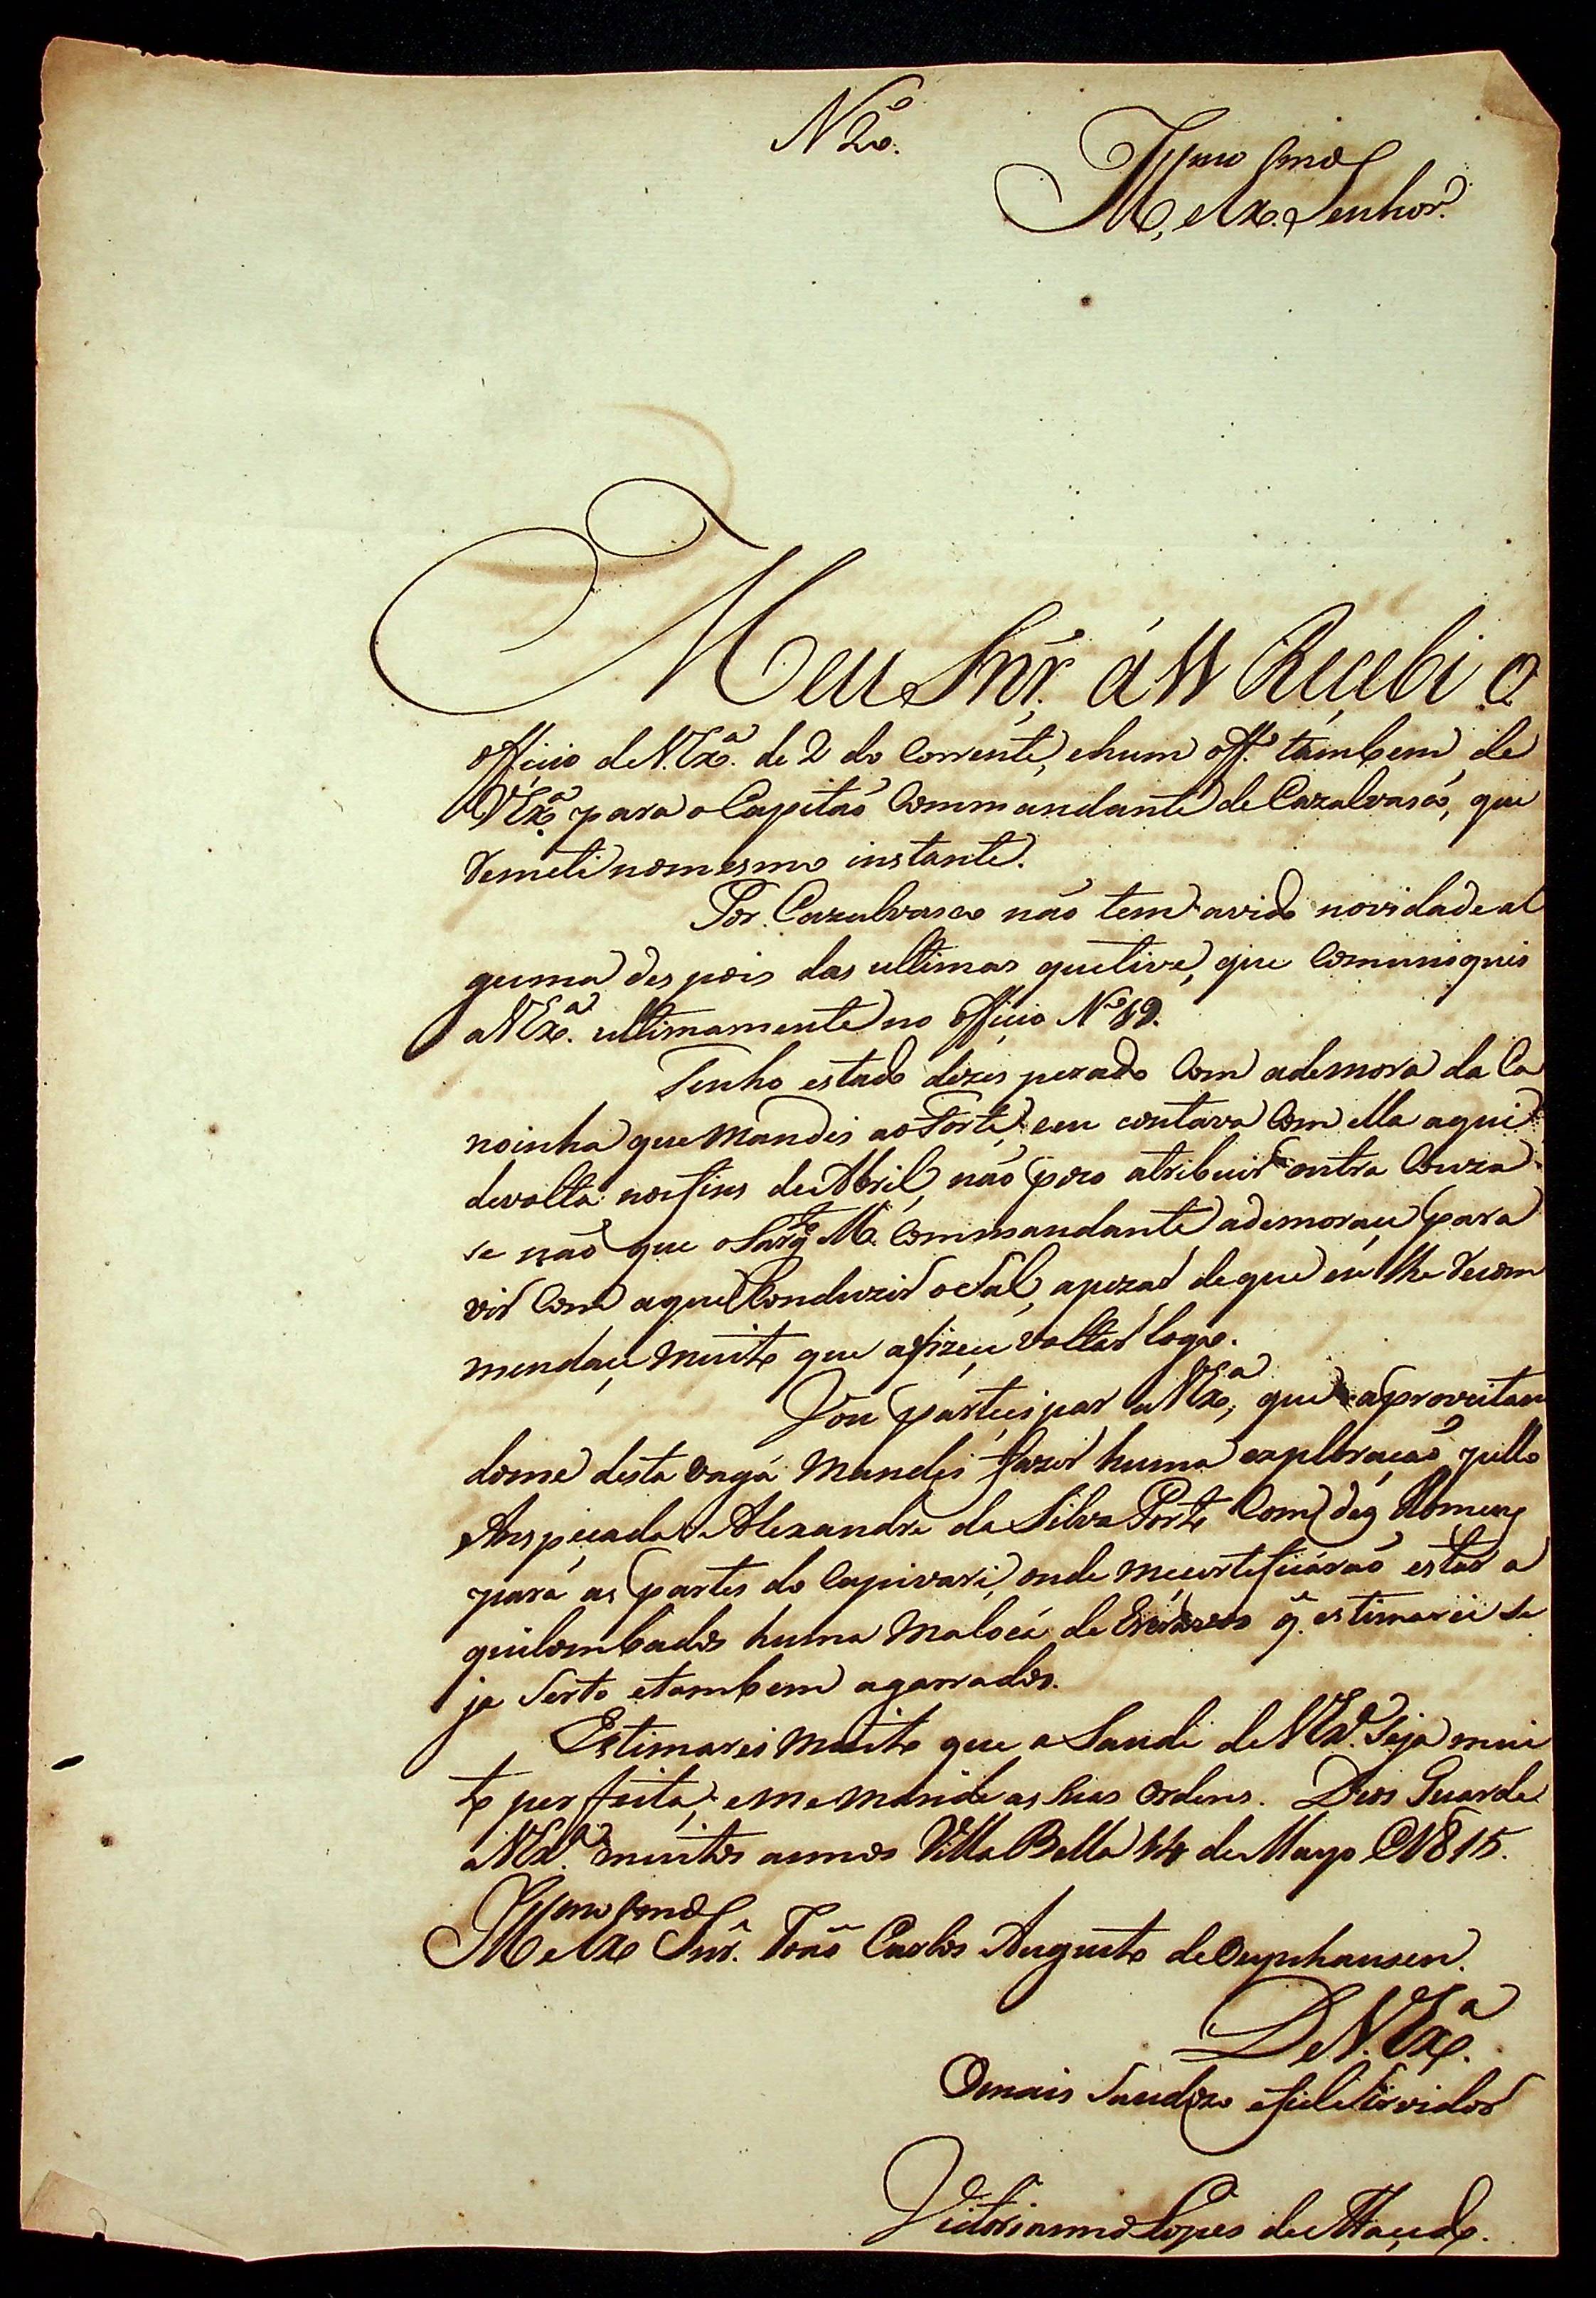 N.º 20.
Ill.mo e Ex.mo Senhor.
Meu Snr. á 11 Recebi o
officio de V. Ex.ª de 2 do Corrente, e hum off.º tambem de
V Ex.ª para o Capitaõ Commandante de Cazalvasco, que
Remeti no mesmo instante.
Por Cazalvasco naõ tem avido novidade al
guma des pois das ultimas que tive, que Comuniquei
a V Ex.ª ultimamente no officio N.º 19.
Tenho estado dezes perado Com a demora da Ca
noinha que Mandei ao Forte, eu contava Com ella aqui
de volta nos fins de Abril, naõ poso atribuir outra Couza
se naõ que o Sarg.to M. Commandante a demorace para
vir Com aquel Conduzir o Sal, apezar de que eu lhe Recom
mendace Muito que a fizece voltar logo.
Vou partecipar a V Ex.ª, que aproveitan
dome desta vaga Mandei fazer huma exploraçaõ pello
Anspeçada Alexandre da Silva Porto Com dez Homens
para as partes do Capivari, onde me certeficáraõ estar a
quilombados huma Maloca de Escravos q̃ estimarei se
ja Serto e tambem agarrados.
Estimarei Muito que a Saude de V Ex.ª Seja mui
to per feita, e me Mande as Suas Ordens. Deos Guarde
a V Ex.ª muitos annos Villa Bella 14 de Mayo 1815.
Ill.mo e Ex.mo Snr. Joaõ Carlos Augusto de Oeynhausen.
De V. Ex.ª
O mais Saudozo e fiel Servidor
Victorianno Lopes de Macedo.